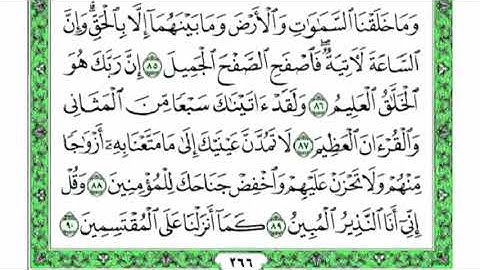 وَمَا خَلَقْنَا السَّمَٰوَٰتِ وَالْأَرْضَ وَمَا بَيْنَهُمَآ إِلَّا بِالْحَقِّ ۗ وَإِنَّ
السَّاعَةَ لَآتِيَةٌ ۖ فَاصْفَحِ الصَّفْحَ الْجَمِيلَ ٨٥ إِنَّ رَبَّكَ هُوَ
الْخَلَّٰقُ الْعَلِيمُ ٨٦ وَلَقَدْ ءَاتَيْنَٰكَ سَبْعًا مِّنَ الْمَثَانِي
وَالْقُرْءَانَ الْعَظِيمَ ٨٧ لَا تَمُدَّنَّ عَيْنَيْكَ إِلَىٰ مَا مَتَّعْنَا بِهِۦٓ أَزْوَٰجًا
مِّنْهُمْ وَلَا تَحْزَنْ عَلَيْهِمْ وَاخْفِضْ جَنَاحَكَ لِلْمُؤْمِنِينَ ٨٨ وَقُلْ
إِنِّيٓ أَنَا النَّذِيرُ الْمُبِينُ ٨٩ كَمَآ أَنزَلْنَا عَلَى الْمُقْتَسِمِينَ ٩٠
٢٦٦